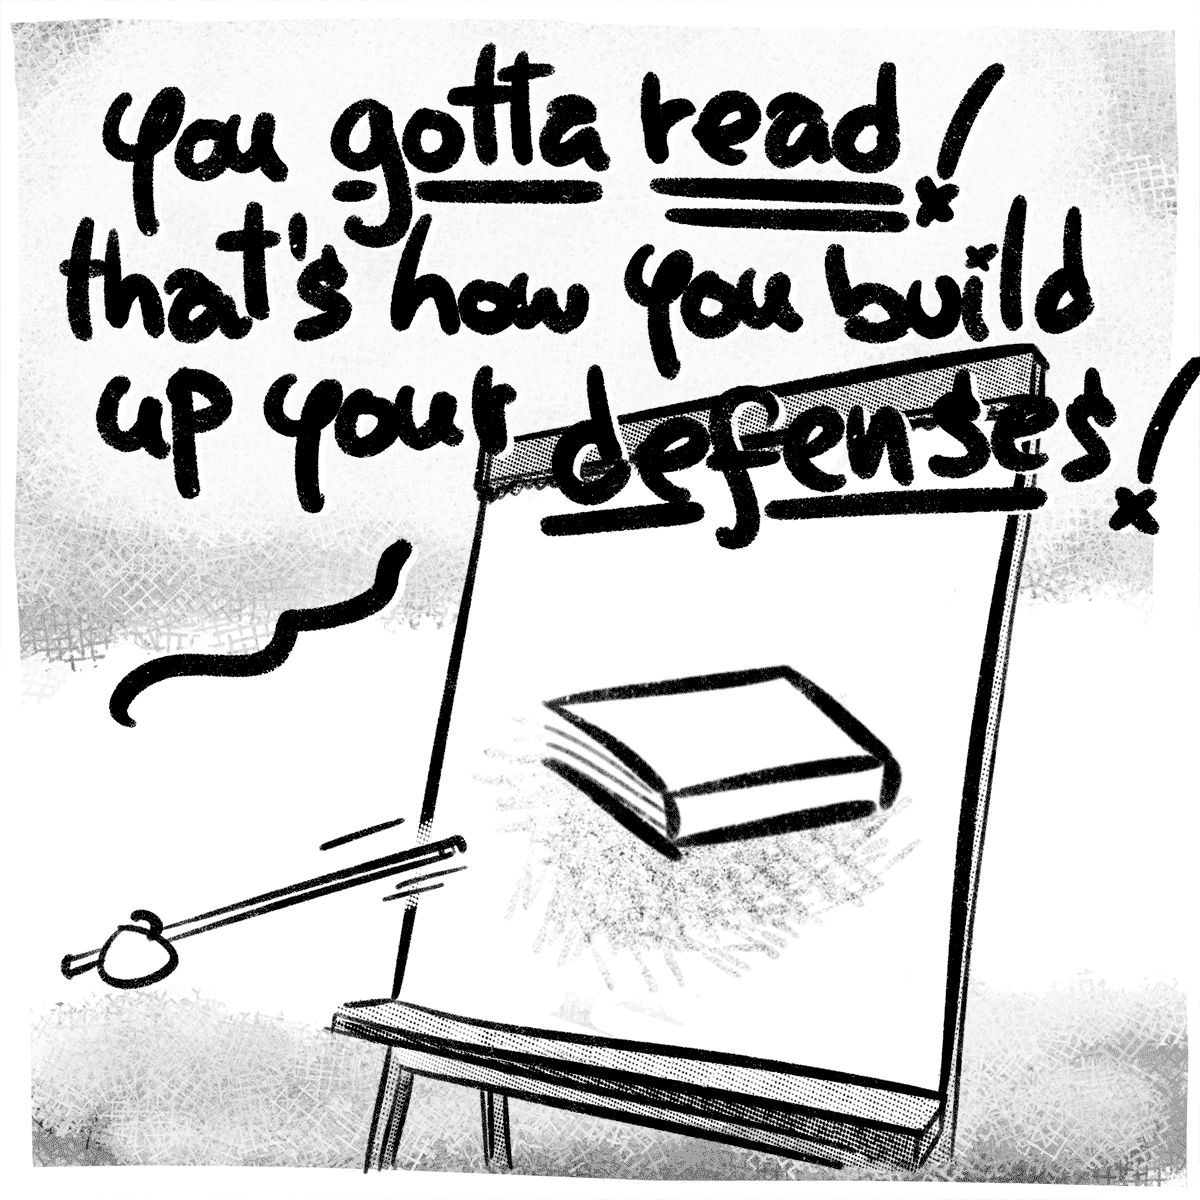 you gotta read!
that's how you build
up your defenses!